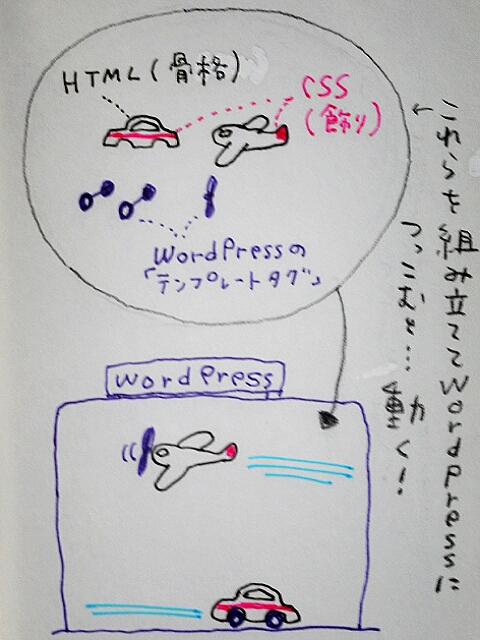 HTML(骨格)
CSS
(飾り)
WordPressの
「テンプレートタグ」
wordpress
これらを組み立ててwordpressに
つっこむと…動く!